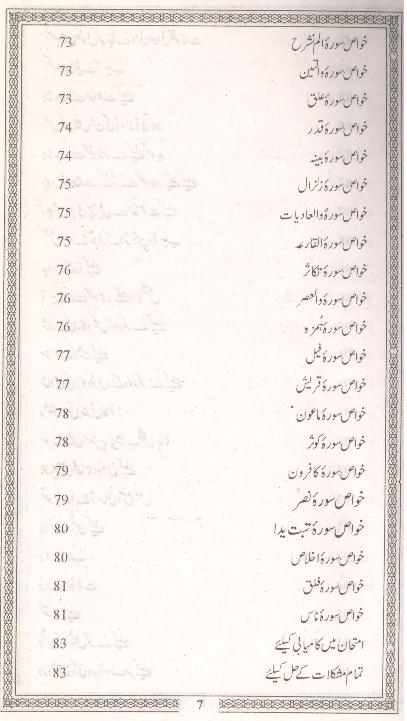 خواص سورۂ الم نشرح 73
خواص سورۂ والتین 73
خواص سورۂ علق 73
خواص سورۂ قدر 74
خواص سورۂ بینہ 74
خواص سورۂ زلزال 75
خواص سورۂ والعادیات 75
خواص سورۂ القارعہ 75
خواص سورۂ تکاثر 76
خواص سورۂ والعصر 76
خواص سورۂ ہُمزہ 76
خواص سورۂ فیل 77
خواص سورۂ قریش 77
خواص سورۂ ماعون 78
خواص سورۂ کوثر 78
خواص سورۂ کافرون 79
خواص سورۂ نصر 79
خواص سورۂ تبت یدا 80
خواص سورۂ اخلاص 80
خواص سورۂ فلق 81
خواص سورۂ ناس 81
امتحان میں کامیابی کیلئے 83
تمام مشکلات کے حل کیلئے 83
7